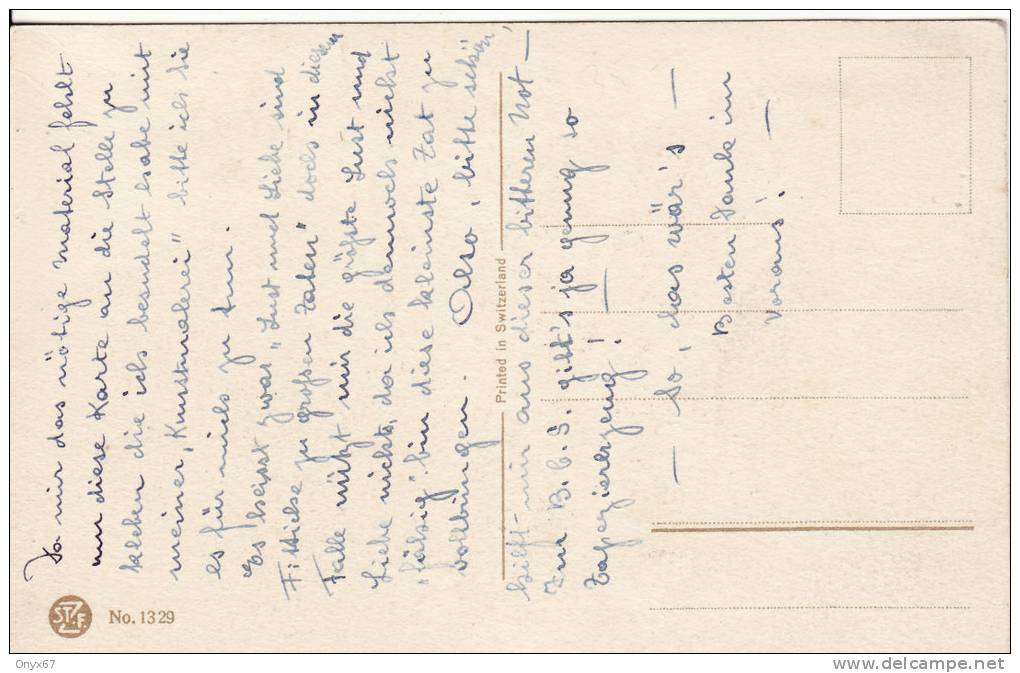 Da mir das nötige Material fehlt
um diese Karte an die Stelle zu
kleben die ich besudelt habe mit
meiner „Kunstmalerei" bitte ich Sie
es für mich zu tun.
Es heisst zwar „Lust und Liebe sind
Fittiche zu großen Taten" doch in diesem
Falle nützt mir die größte Lust und
Liebe nichts, da ich dennoch nicht
„fähig" bin diese kleinste Tat zu
vollbringen. Also, bitte schön,
helft mir aus dieser bitteren Not –
Im B.C.S. gibt's ja genug so
Tapeziererzeug! —
— So, das wär's —
Besten Dank im
voraus! —
Printed in Switzerland
ST.Z.F.
No. 1329
Onyx67
www.delcampe.net